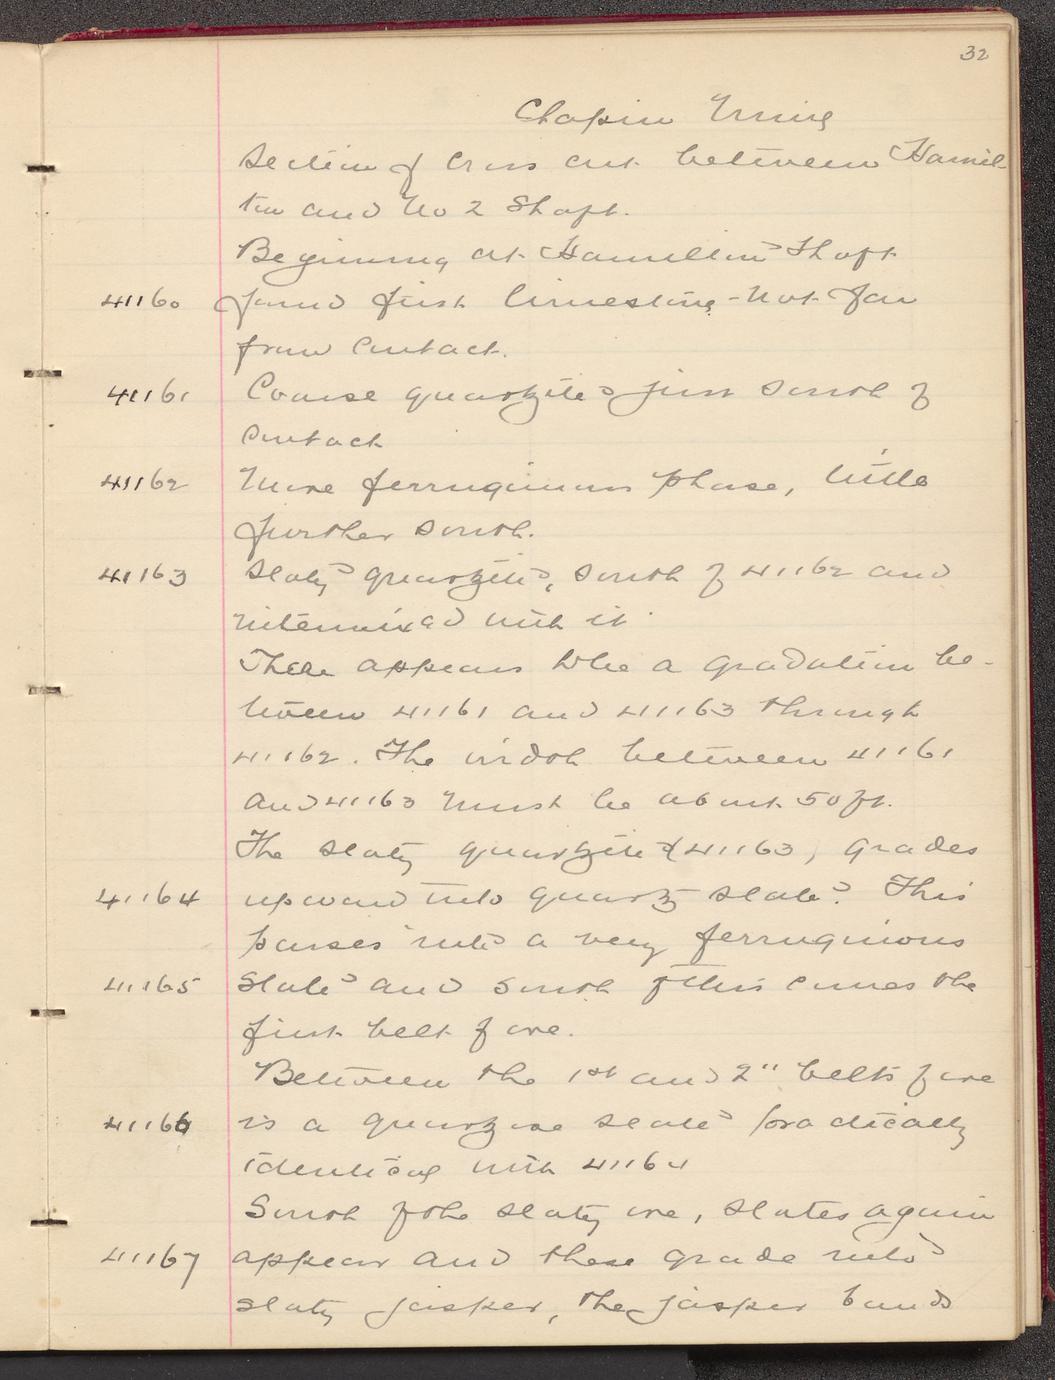 32
Chapin Mine
Section of Cross cut between Hamil-
ton and No 2 Shaft.
Beginning at Hamilton Shaft
41160 found first limestone - Not far
from Contact.
41161 Coarse quartzite just South of
Contact
41162 More ferruginous phase, little
further south.
41163 Slaty quartzite, south of 41162 and
intermixed with it
There appears to be a gradation be-
tween 41161 and 41163 through
41162. The width between 41161
and 41163 must be about 50 ft.
The slaty quartzite of 41163, grades
41164 upward into quartz slate. This
passes into a very ferruginous
41165 Slate and south of this comes the
first belt of ore.
Between the 1st and 2" belts of ore
41166 is a quartzose slate practically
identical with 41164
South of the slaty ore, slates again
41167 appear and these grade into
slaty jasper, the jasper bands